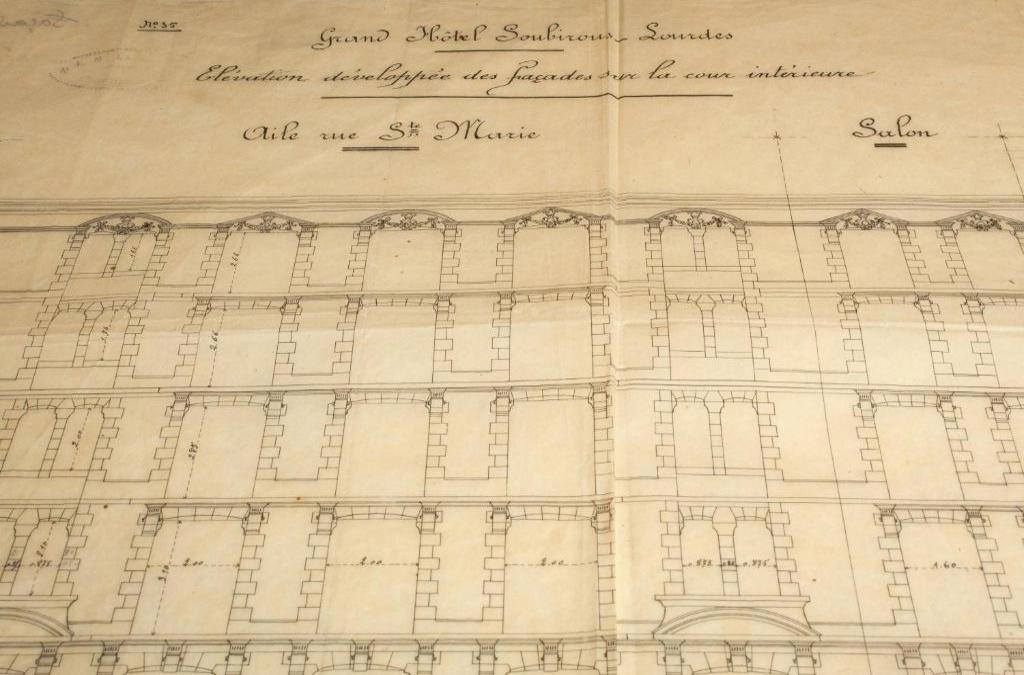 No 35
Grand Hôtel Soubirous - Lourdes
Elévation développée des façades sur la cour intérieure
Aile rue Ste Marie
Salon
2.66
2.66
2.00
2.85
2.00
2.00
2.00
0.875
0.875
1.60